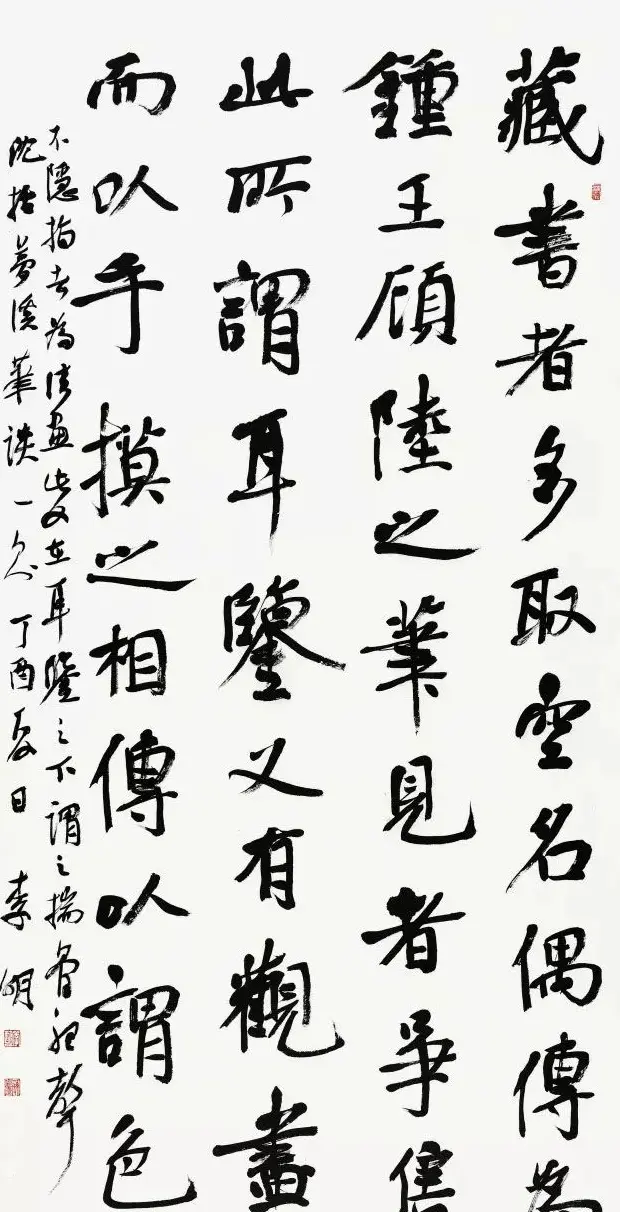 藏書者多取空名偶傳為
鍾王顧陸之筆見者爭售
此所謂耳鑒又有觀畫
而以手摸之相傳以謂色
不隱指者為佳畫此又在耳鑒之下謂之揣骨聽聲
沈括夢溪筆談一則 丁酉夏日 李明